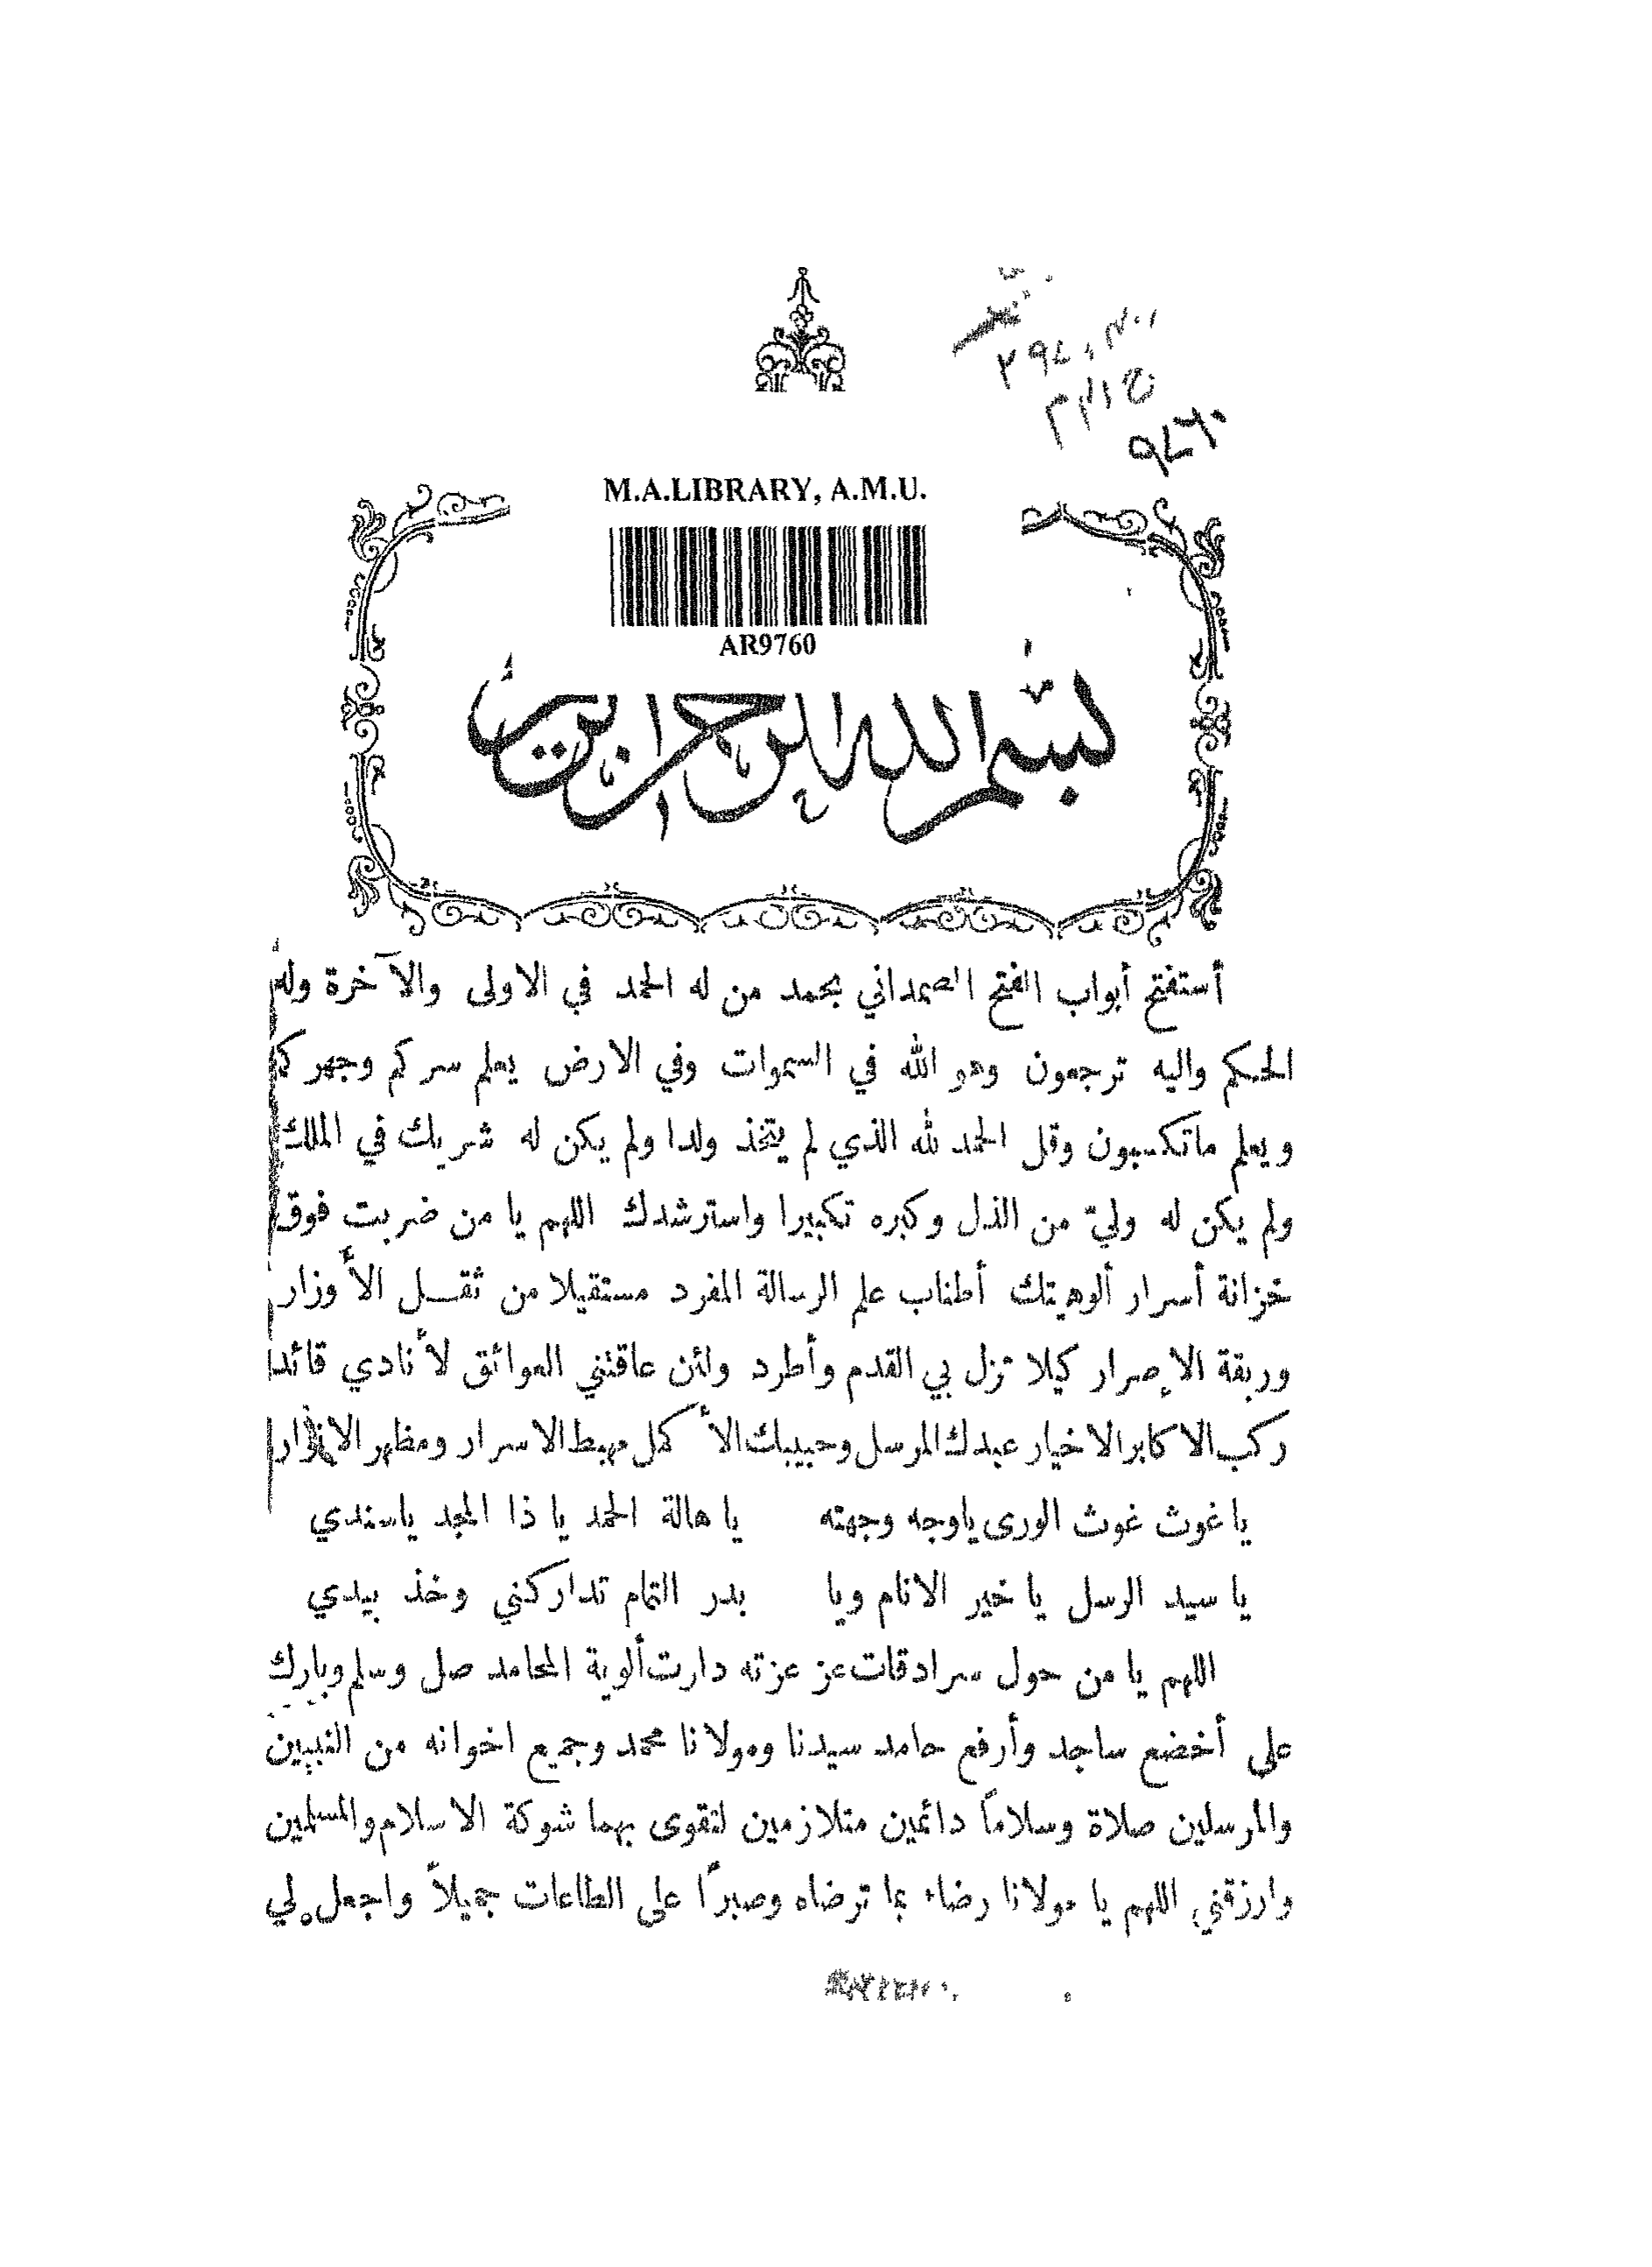 ٩٧٦٠
M.A.LIBRARY, A.M.U.
AR9760
بسم الله الرحمن الرحيم
أستفتح أبواب الفتح الصمداني بحمد من له الحمد في الاولى والآخرة وله
الحكم واليه ترجعون وهو الله في السموات وفي الارض يعلم سركم وجهركم
ويعلم ماتكسبون وقل الحمد لله الذي لم يتخذ ولدا ولم يكن له شريك في الملك
ولم يكن له وليّ من الذل وكبره تكبيرا واسترشدك اللهم يا من ضربت فوق
خزانة أسرار ألوهيتك أطناب علم الرسالة المفرد مستقيلا من ثقل الأوزار
وربقة الإصرار كيلا تزل بي القدم وأطرد ولئن عاقتني العوائق لأنادي قائدا
ركب الاكابر الاخيار عبدك المرسل وحبيبك الأكمل مهبط الاسرار ومظهر الانوار
يا غوث غوث الورى ياوجه وجهته يا هالة الحمد يا ذا المجد ياسندي
يا سيد الرسل يا خير الانام ويا بدر التمام تداركني وخذ بيدي
اللهم يا من حول سرادقات عز عزته دارت ألوية المحامد صل وسلم وبارك
على أخضع ساجد وأرفع حامد سيدنا ومولانا محمد وجميع اخوانه من النبيين
والمرسلين صلاة وسلاماً دائمين متلازمين لتقوى بهما شوكة الاسلام والمسلمين
وارزقني اللهم يا مولانا رضاء بما ترضاه وصبراً على الطاعات جميلاً واجعل لي